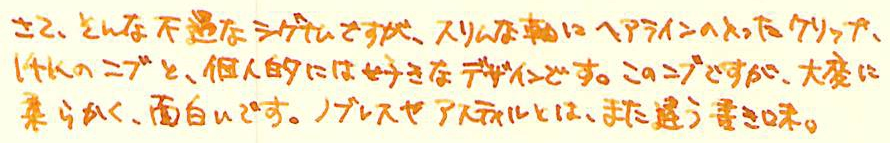 さて、そんな不遇なシグナムですが、スリムな軸にヘアラインの入ったクリップ、
14Kのニブと、個人的には好きなデザインです。このニブですが、大変に
柔らかく、面白いです。ノブレスやアスティルとは、また違う書き味。